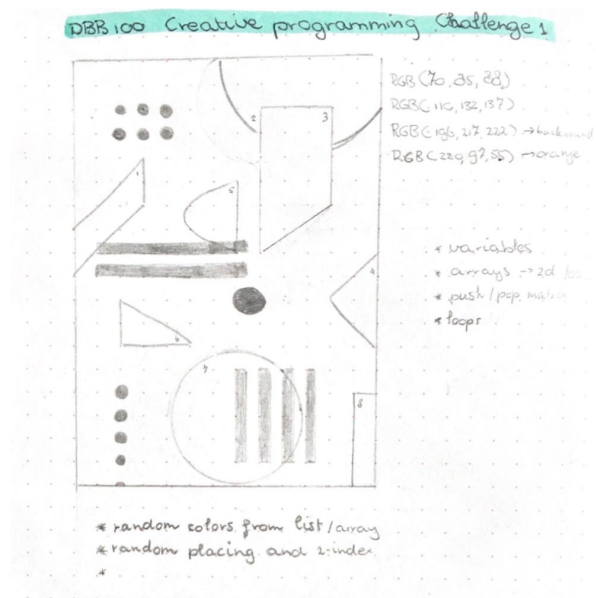 DBB100 Creative programming Challenge 1
RGB(70, 85, 88)
RGB(110, 132, 137)
RGB(196, 217, 222) → background
RGB(229, 97, 55) → orange
2
3
1
5
* variables
* arrays → 2d
* push/pop matrix
* loops
4
6
7
8
* random colors from list/array
* random placing and z-index
*